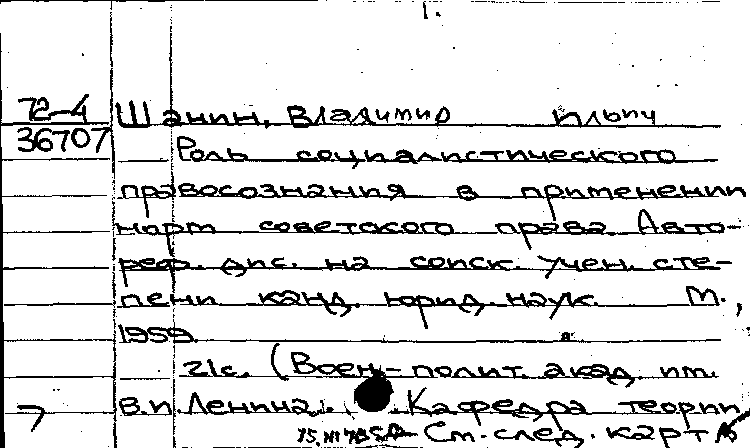 1.
72-4
36707
Шанин, Владимир Ильич
Роль социалистического
правосознания в применении
норм советского права. Авто-
реф. дис. на соиск. учен. сте-
пени канд. юрид. наук. М.,
1959.
21с. (Воен.-полит. акад. им.
В.И.Ленина. Кафедра теории
См. след. карт.